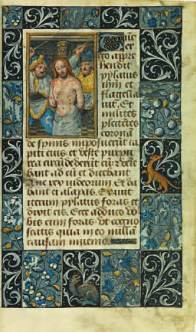 appre
hendit
pylatus
ihm et
flagella
uit Et
milites
plectētes
coronā
de spinis imposuerūt ca
piti eius et veste purpu
rea circūdederūt eū Et
veniebāt ad eū et dicebant
Aue rex iudeorum et da
bant ei alapas. Exiuit i
terum pylatus foras et
dicit eis. Ecce adduco vo
bis eum foras ut cogno
scatis quia in eo nullā
causam inuenio